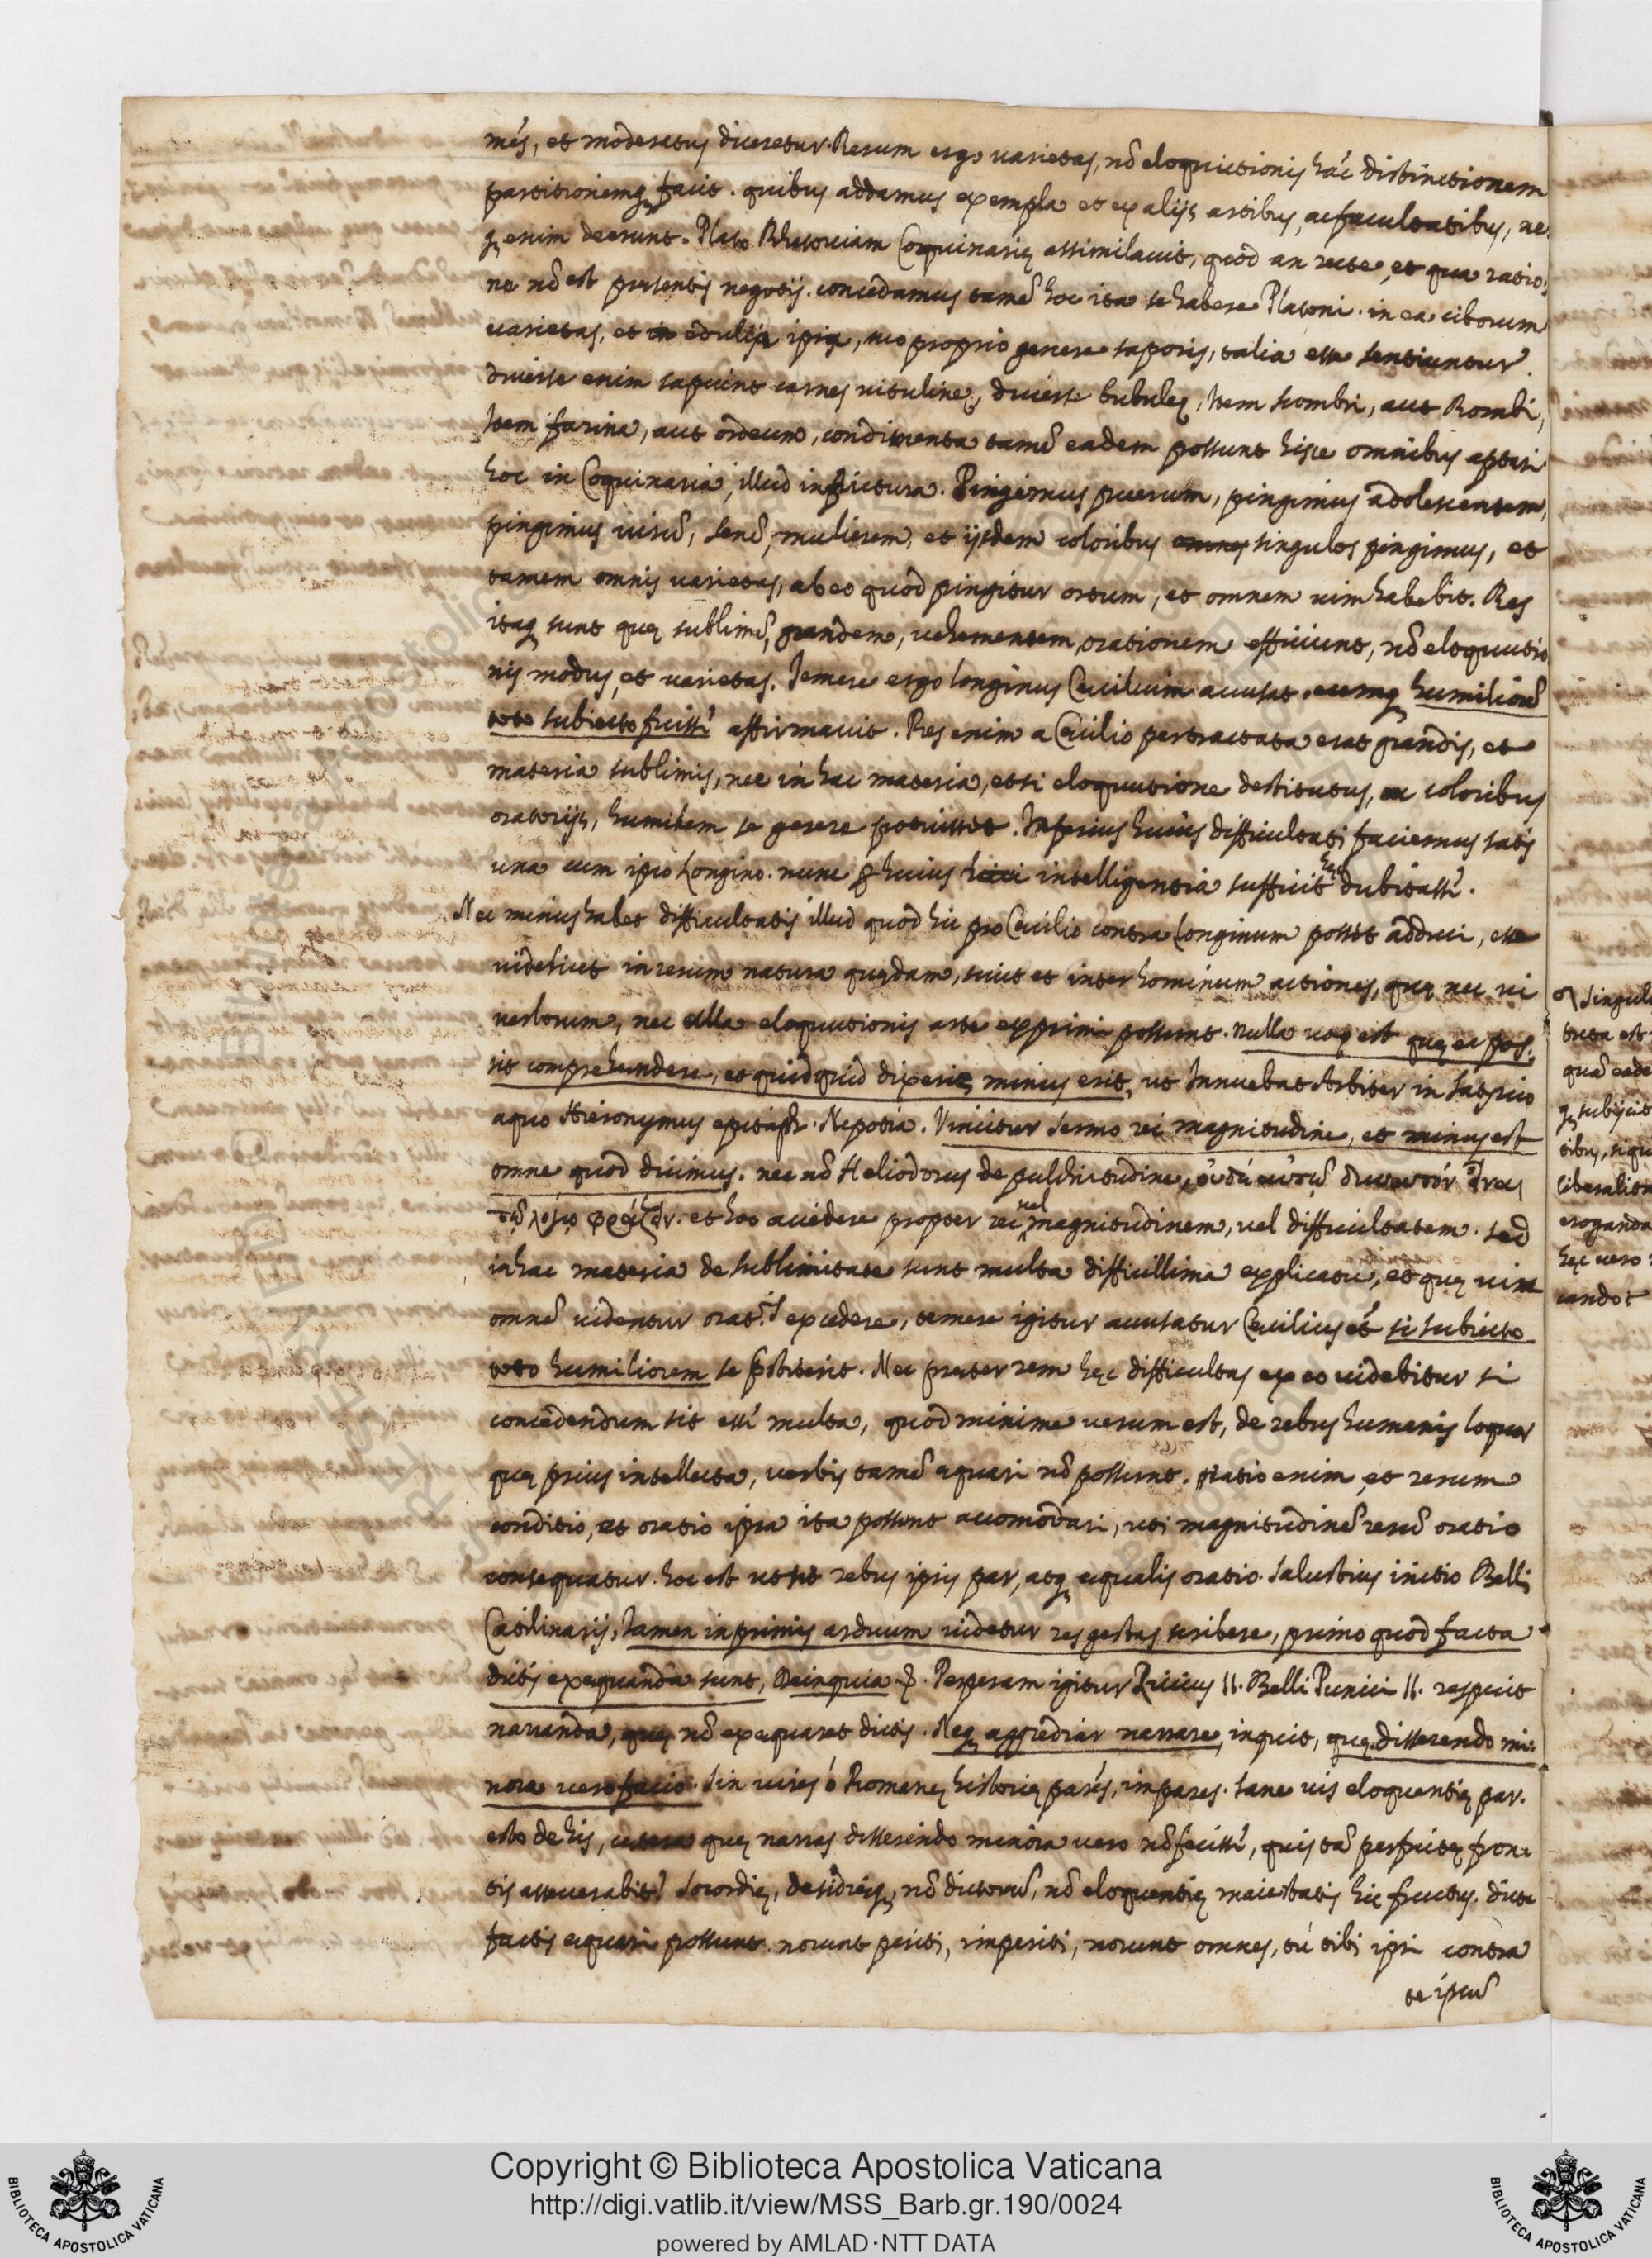 més, et moderatus diceretur. Rerum ergo varietas, nō eloquutionis hāc distinctionem
partitionemq; facit. quibus addamus exempla et ex alijs artibus, ac facultatibus, ne
q; enim deerunt. Plato Rhetoricam Coquinarię assimilavit, quod an recte, et qua ratio:
ne nō est presentis negotij. concedamus tamē hoc ita se habere Platoni. in ea ciborum
varietas, et edulia ipsa, suo proprio genere saporis, talia esse sentiuntur.
diverse enim sapiunt carnes vitulinę, diverse bubulę, Item scombri, aut Rombi,
Item farina, aut ordeum, condimenta tamē eadem possunt hisce omnibus aptari.
hoc in Coquinaria, illud in pictura. Pingimus puerum, pingimus adolescentem,
pingimus virū, senē, mulierem, et ijsdem coloribus omnes singulos pingimus, et
tamem omnis varietas, ab eo quod pingitur ortum, et omnem vim habebit. Res
itaq; sunt quę sublimē, grandem, vehementem, orationem efficiunt, nō eloquutio
nis modus, et varietas. Temere ergo Longinus Cecilium accusat, eumq; humiliorē
toto subiecto fuisse affirmavit. Res enim a Cecilio pertractata erat grandis, et
materia sublimis, nec in hac materia, etsi eloquutione destitutus, ac coloribus
oratorijs, humilem se gerere potuisset. Inferius huius difficultati faciemus satis
una cum ipso Longino. nunc p huius loci intelligentia sufficit hęc dubitasse.
Nec minus habet difficultatis illud quod hic pro Cecilio contra Longinum posset adduci, esse
videlicet in rerum natura quędam, sicut et inter hominum actiones, quę nec vi
verborum, nec ulla eloquutionis arte exprimi possunt. nulla vox est quę ea pos:
sit comprehendere, et quidquid dixeris minus erit, ut Innuebat Arbiter in Satyrico
a quo Hieronymus epitaph. Nepotia. Vincitur sermo rei magnitudine, et minus est
omne quod dicimus. nec nō Heliodorus de pulchritudine,
τῷ λόγῳ φράζειν. et hoc accidere propter rei vel magnitudinem, vel difficultatem. sed
in hac materia de sublimitate sunt multa difficillima explicatu, et quę vim
omnē videntur orat.s excedere, temere igitur accusatur Cecilius et si subiecto
toto humiliorem se prebiterit. Nec preter rem hęc difficultas ex eo videbitur si
concedendum sit esse multa, quod minime verum est, de rebus humanis loquor
quę prius intellecta, verbis tamē equari nō possunt. Ratio enim, et rerum
conditio, et oratio ipsa ita possunt accomodari, uti magnitudinē rerū oratio
consequatur. hoc est ut sit rebus ipsis par, atq; equalis oratio. Salustius initio Belli
Catilinarij, Tamen inprimis arduum videtur res gestas scribere, primo quod facta
dictis exequanda sunt, Deinquia &. Perperam igitur Livius II. Belli Punici II. respicit
narranda, quę nō exequaret dictis. Neq; aggrediar narrare, inquit, quę differendo mi:
nora vero facio. Sin vires ò Romanę historię parēs, impares. sane vis eloquentię par.
esto de his, cetera quę narras disserendo minora vero nō fecisse, quis tā perfrictę fron:
tis asseverabit? Socordię, desidięq; nō dictorū, nō eloquentię maiestatis hic fructus. dicta
factis equari possunt. norunt periti, imperiti, norunt omnes, tu tibi ipsi contra
te ipsū
singul
tuta est
quā eade
q; subijcit
tibus, siqu
liberalita
eroganda
hęc vero
cando
Copyright © Biblioteca Apostolica Vaticana
http://digi.vatlib.it/view/MSS_Barb.gr.190/0024
powered by AMLAD·NTT DATA
BIBLIOTECA APOSTOLICA VATICANA
BIBLIOTECA APOSTOLICA VATICANA